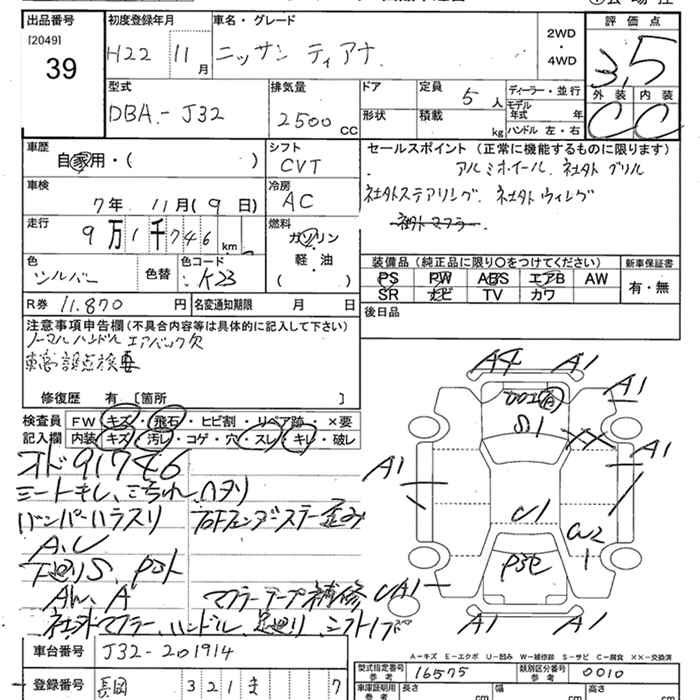 出品番号
[2049]
39
初度登録年月
H22 11月
車名・グレード
ニッサン ティアナ
2WD
・
4WD
評価点
3.5
外装 内装
C C
型式
DBA-J32
排気量
2500 CC
ドア
形状
定員
5人
積載
kg
ディーラー・並行
モデル
年式 年
ハンドル 左・右
車歴
自家用・( )
シフト
CVT
セールスポイント(正常に機能するものに限ります)
アルミホイール. 社外グリル
社外ステアリング. 社外ウィング
社外マフラー
車検
7年 11月(9日)
冷房
AC
走行
9万1千746km
燃料
ガソリン
軽・油
( )
色
シルバー
色替
色コード
K23
装備品(純正品に限り○をつけてください)
PS PW ABS エアB AW
SR ナビ TV カワ
新車保証書
有・無
R券 11.870円
名変通知期限 月 日
後日品
注意事項申告欄(不具合内容等は具体的に記入して下さい)
ノーマルハンドルエアバック欠
車高調点検要
修復歴 有[箇所 ]
検査員
記入欄
FW キズ・飛石・ヒビ割・リペア跡 ×要
内装 キズ・汚レ・コゲ・穴・スレ・キレ・破レ
オド91746
シートキレ、ミ汚れ、ハヌリ
バンパーハラスリ
右Fフェンダーステー歪み
A.U
下廻りS、Pコト
AW、A
マフラーアープ補修
社外マフラー、ハンドル、足廻り、シフトノブ
A4 A1
A1
S1
XX
A1
A1
U1
U2
1
UA1
A1 A1
車台番号 J32-201914
A=キズ E=エクボ U=凹み W=補修跡 S=サビ C=腐食 XX=交換済
型式指定番号
参考
16575
類別区分番号
参考
0010
登録番号 長岡 321 ま 7
車庫証明用
参考
長さ
cm
幅
cm
高さ
cm